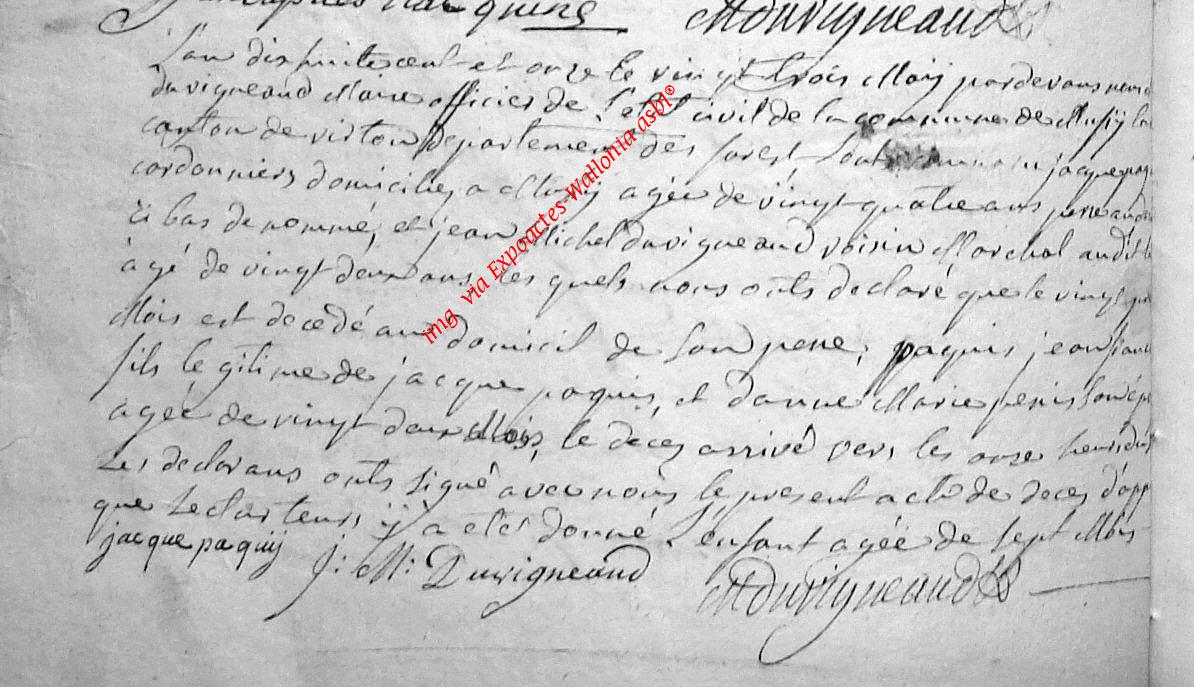 Mduvigneaud
L'an dix huite cent et onze le vingt trois Maij pardevans nous
duvigneaud Maire officier de l'etat civil de la commune de Mussij la
canton de virton departement des forest sont jacque
cordonniers domicilies a Mussij agée de vingt quatre ans pere
ci bas denommé, et jean Michel duvigneaud voisin Marchal audit
âgé de vingt deux ans, les quels nous onts declaré que le vingt
Mois est decedé au domicil de son pere, paquis jean
fils le gitime de jacque paquis, et danne Marie
agée de vingt deux Mois, le deces arrivé vers les onze heures
Les declarans onts signé avec nous le present acte de deces d'app
que Lecture ij a eté donné L'enfant agée de sept Mois
jacque paquij J: M: Duvigneaud Mduvigneaud
img via Expoactes-Wallonia asbl®